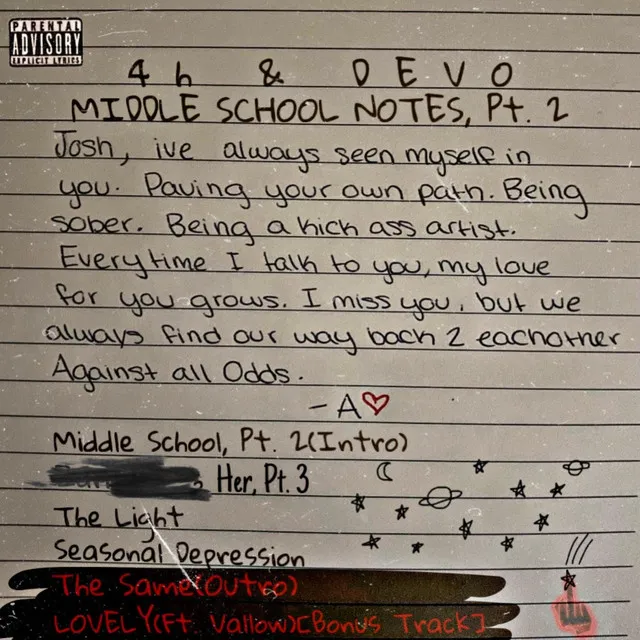 PARENTAL
ADVISORY
EXPLICIT LYRICS
4h & DEVO
MIDDLE SCHOOL NOTES, Pt. 2
Josh, ive always seen myself in
you. Paving your own path. Being
sober. Being a kick ass artist.
Everytime I talk to you, my love
for you grows. I miss you, but we
always find our way back 2 eachother
Against all Odds.
- A
Middle School, Pt. 2(Intro)
Her, Pt. 3
The Light
Seasonal Depression
The Same(Outro)
LOVELY(Ft. Vallow)[Bonus Track]